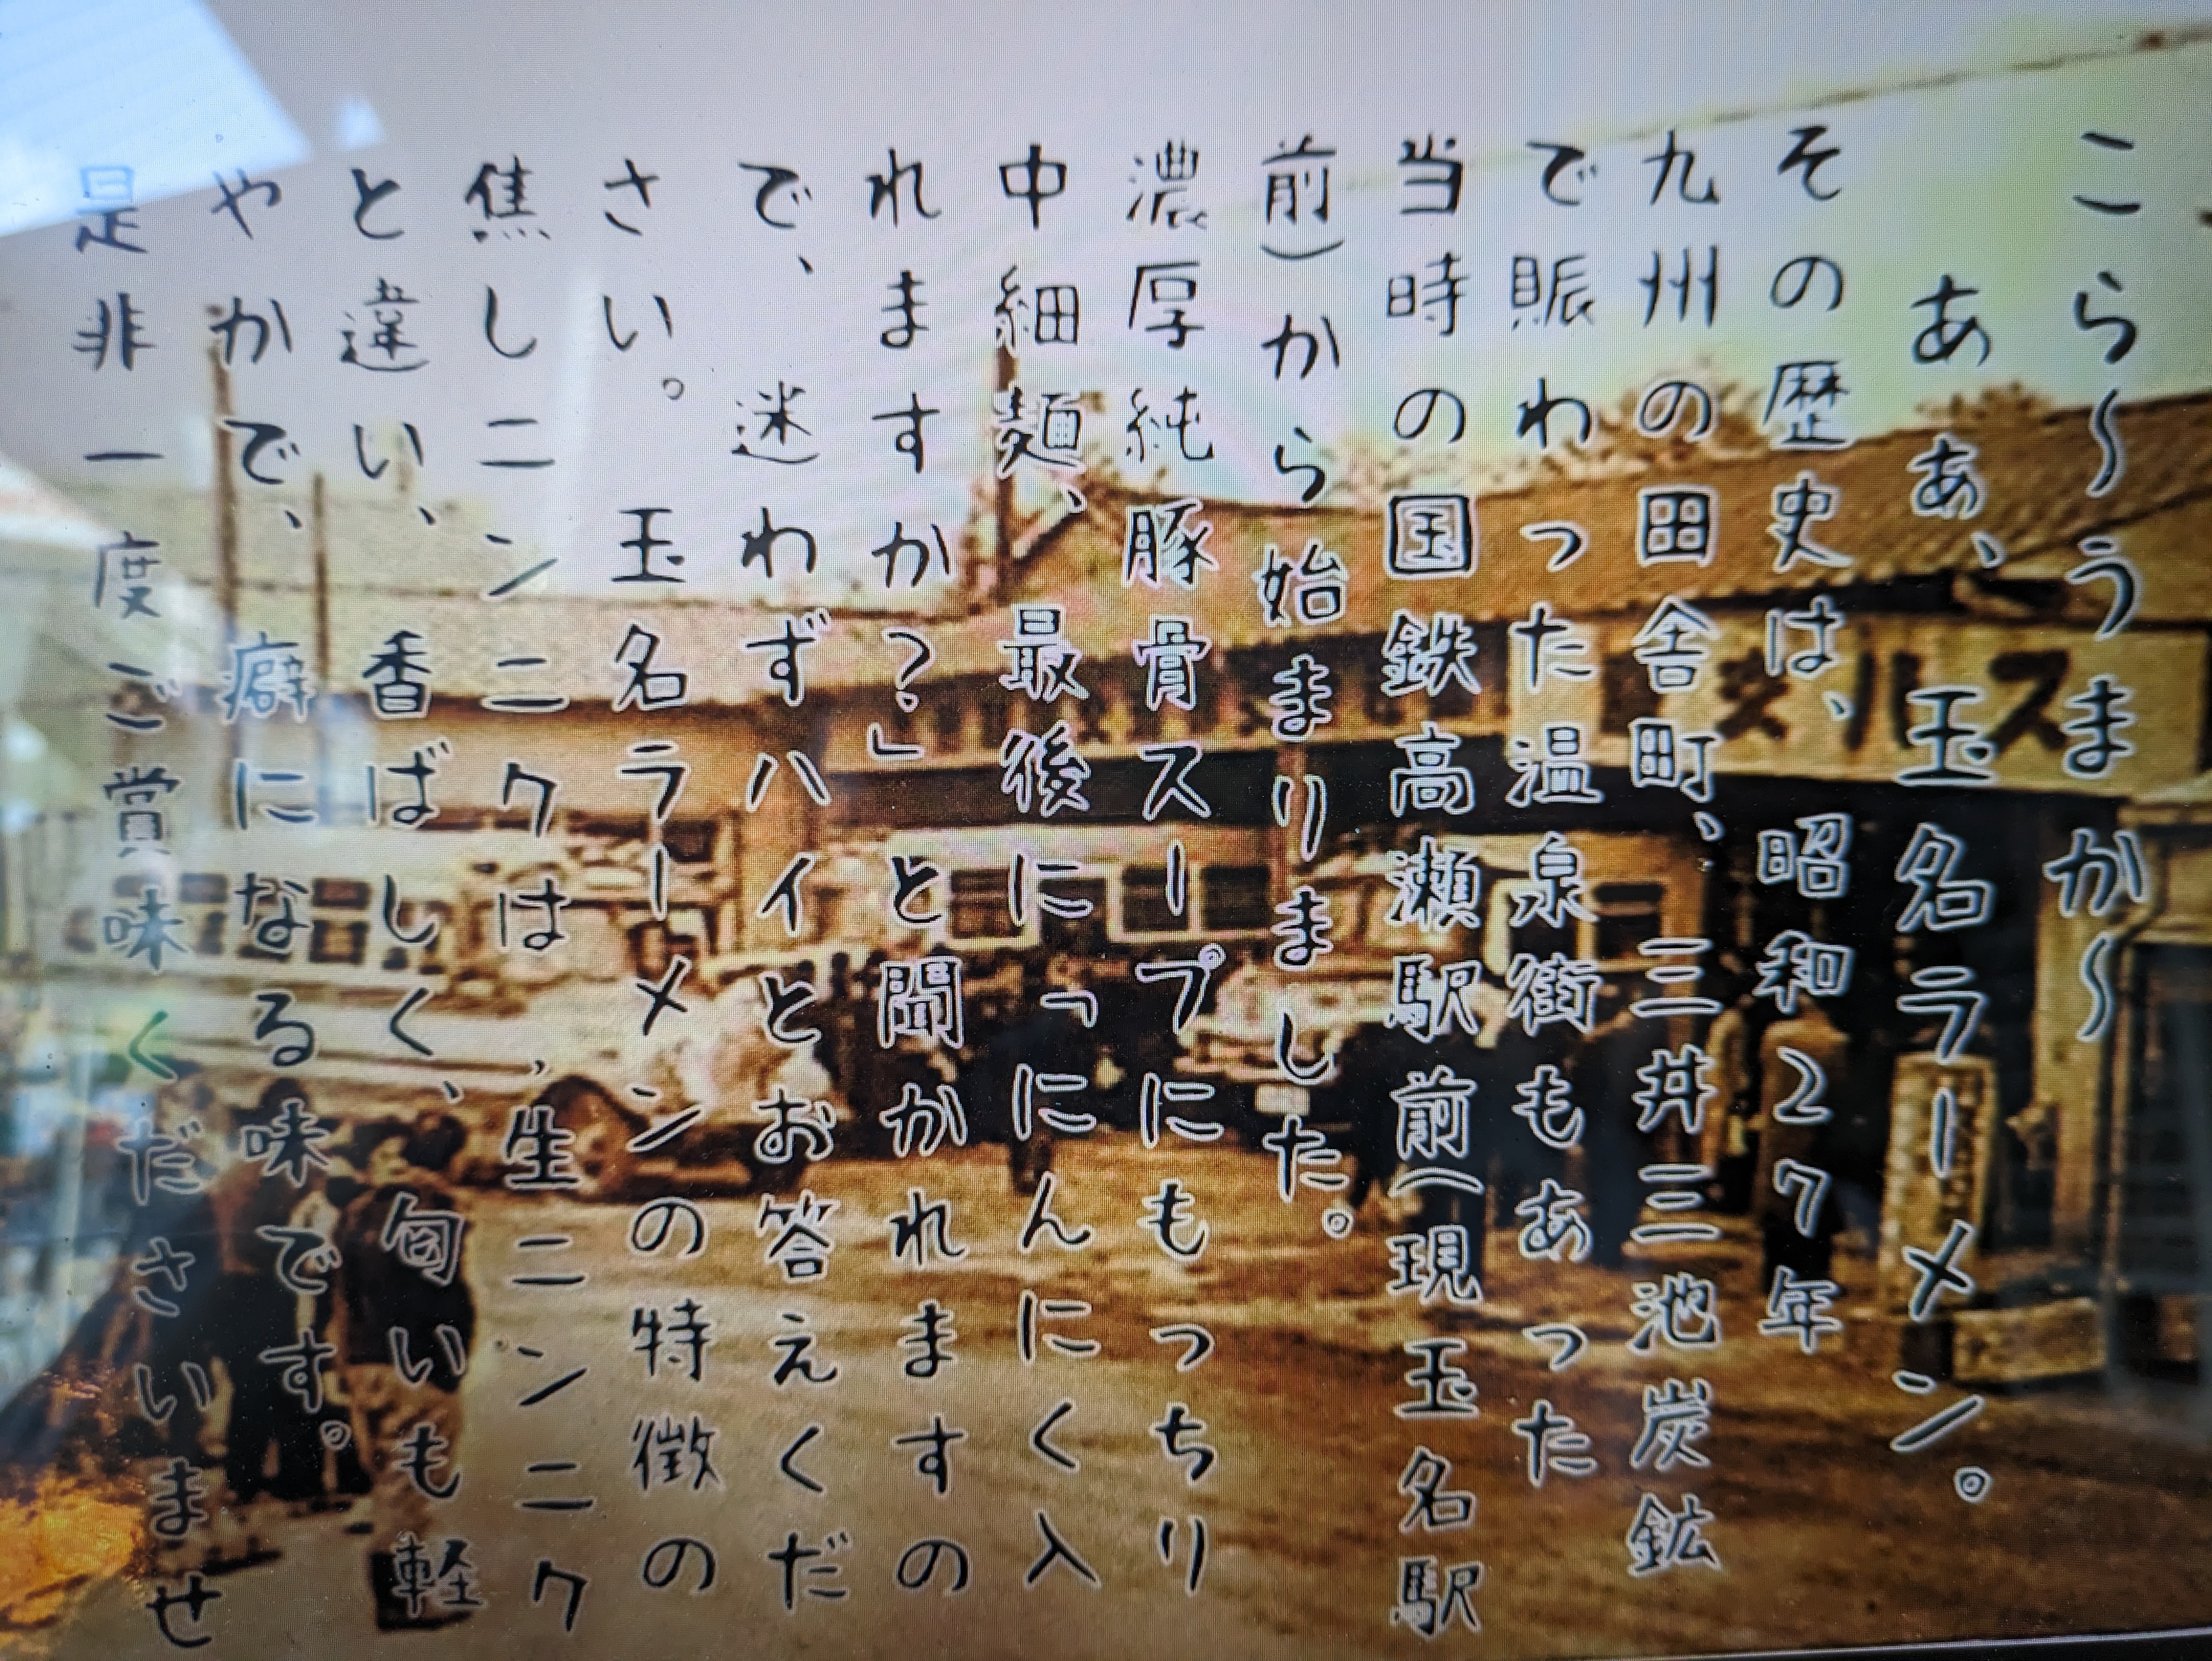 こら〜うまか〜
ああ、玉名ラーメン。
その歴史は、昭和27年
九州の田舎町、三井三池炭鉱
で賑わった温泉街もあった
当時の国鉄高瀬駅前(現玉名駅
前)から始まりました。
濃厚純豚骨スープにもっちり
中細麺、最後に「にんにく入
れますか?」と聞かれますの
で、迷わずハイとお答えくだ
さい。玉名ラーメンの特徴の
焦しニンニクは,生ニンニク
と違い、香ばしく、匂いも軽
やかで、癖になる味です。
是非一度ご賞味くださいませ